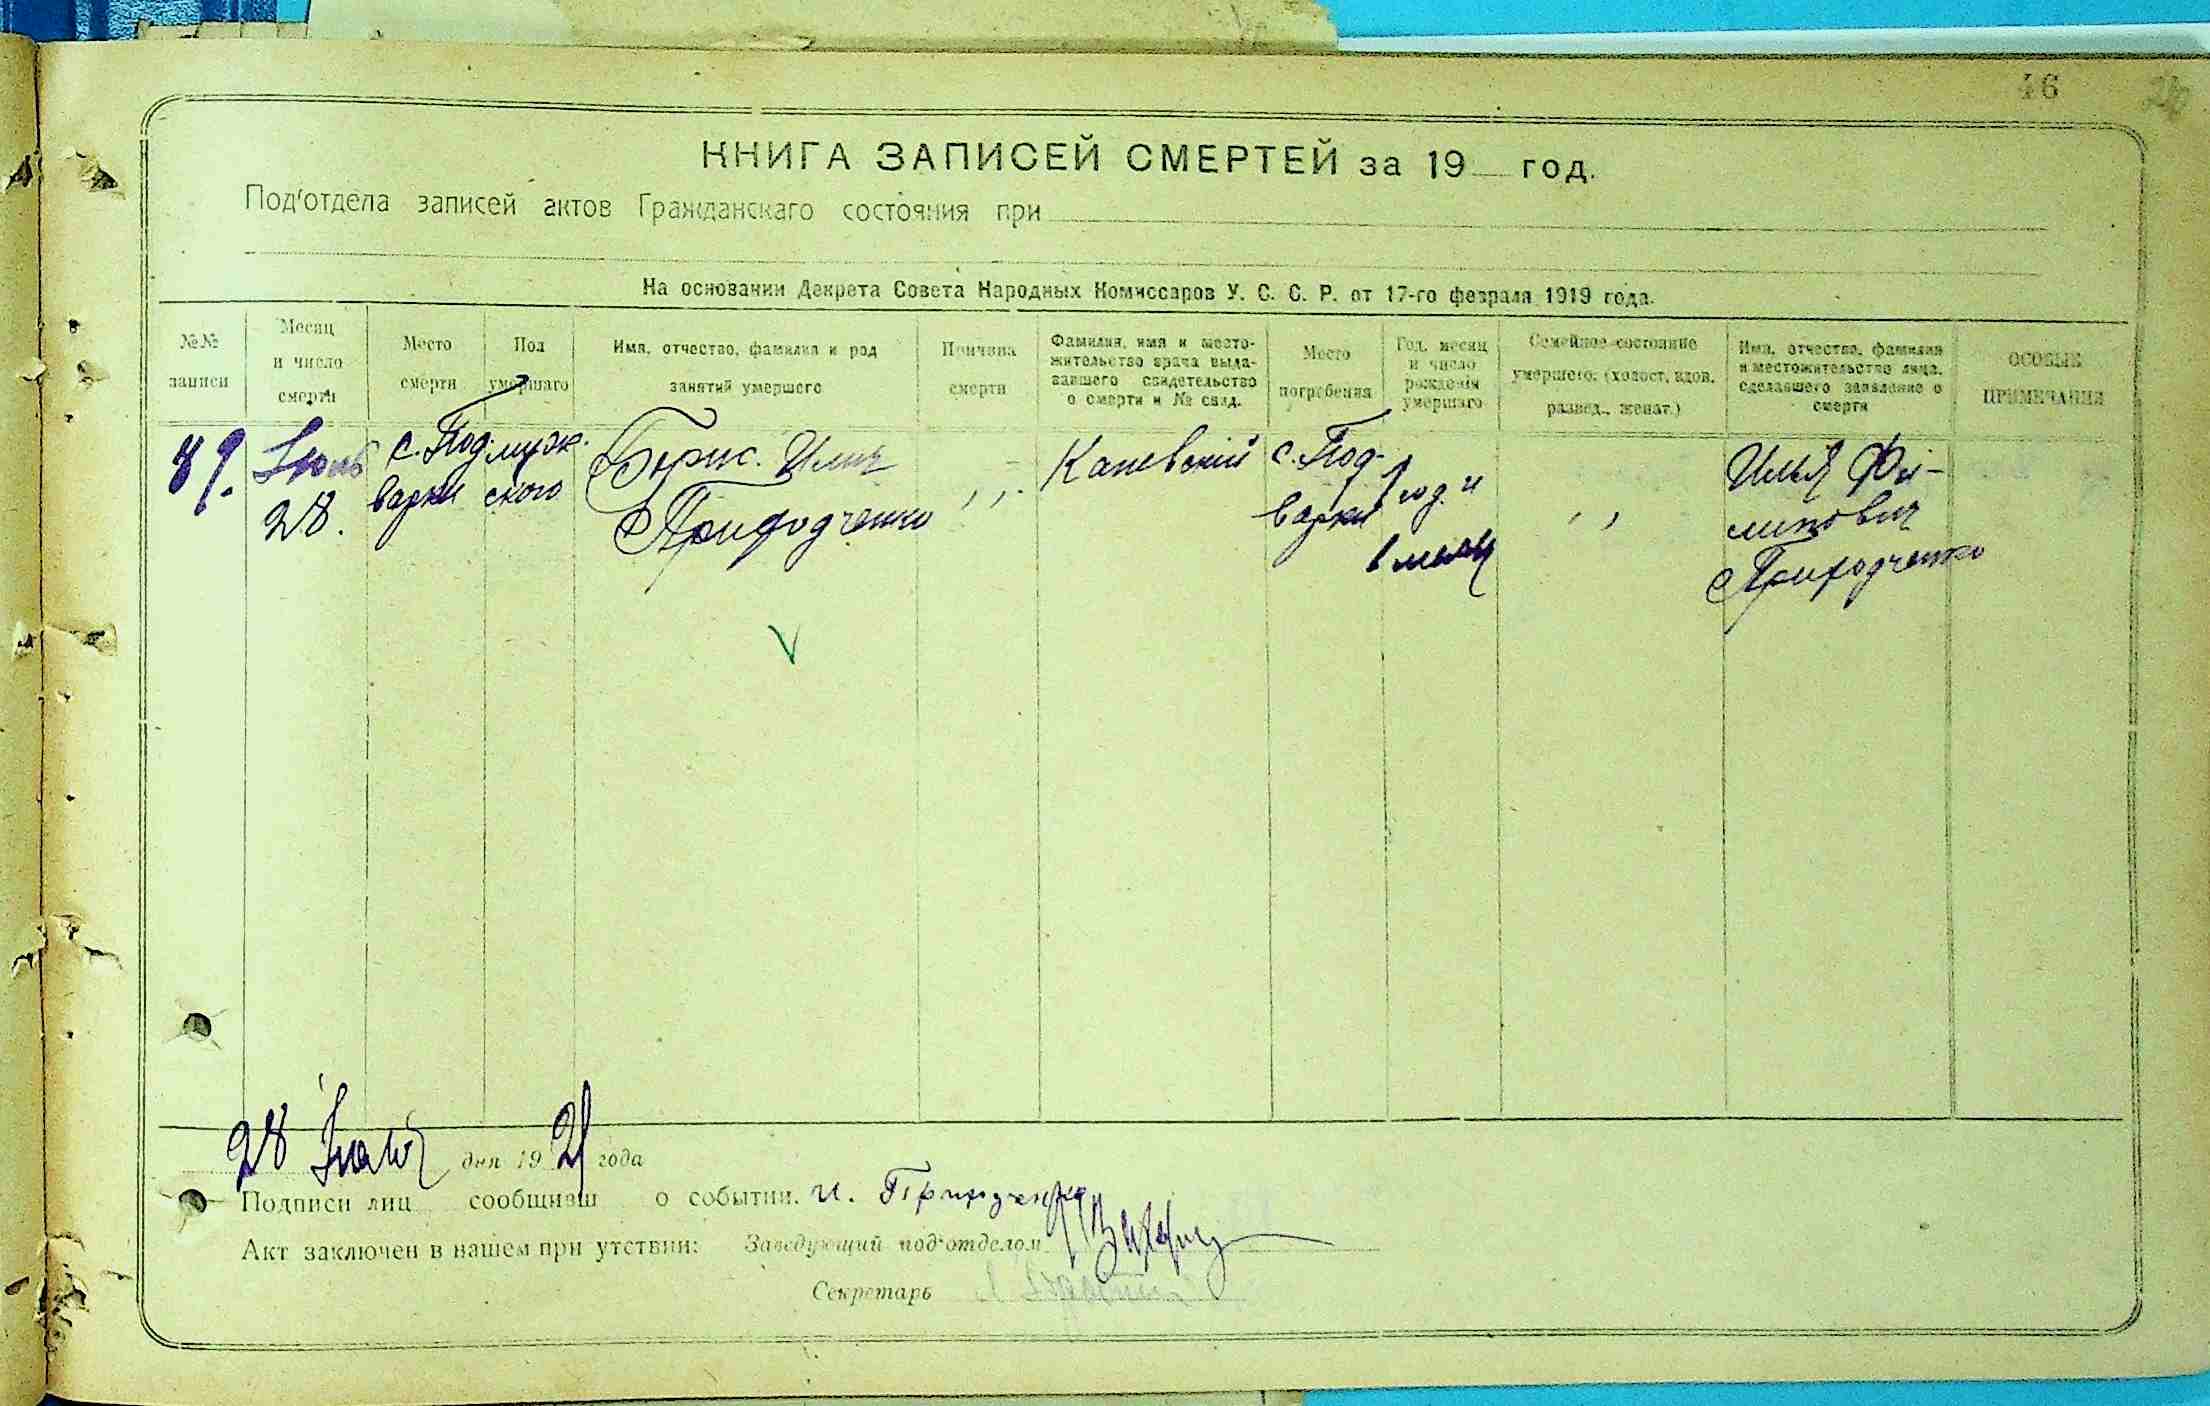 46
КНИГА ЗАПИСЕЙ СМЕРТЕЙ за 19 год.
Под'отдела записей актов Гражданскаго состояния при
На основании Декрета Совета Народных Комиссаров У. С. С. Р. от 17-го февраля 1919 года.
№№ записи
Месяц и число смерти
Место смерти
Пол умершаго
Имя, отчество, фамилия и род занятий умершего
Причина смерти
Фамилия, имя и место-
жительство врача выда-
вавшего свидетельство
о смерти и № свид.
Место погребения
Год, месяц
и число
рождения
умершаго
Семейное состояние
умершего: (холост, вдов,
развед., женат.)
Имя, отчество, фамилия
и местожительство лица,
сделавшего заявление о
смерти
ОСОБЫЕ ПРИМЕЧАНИЯ
39.
28.
с. Под-
варки
мужс-
ского
Борис Илич
Приходченко
Каневский
с. Под-
варки
1 год. и
1 месяц
Илья Фи-
липович
Приходченко
28 дня 1921 года
Подписи лиц сообщивш о событии. И. Приходченко
Акт заключен в нашем при утствии: Заведующий под'отделом
Секретарь